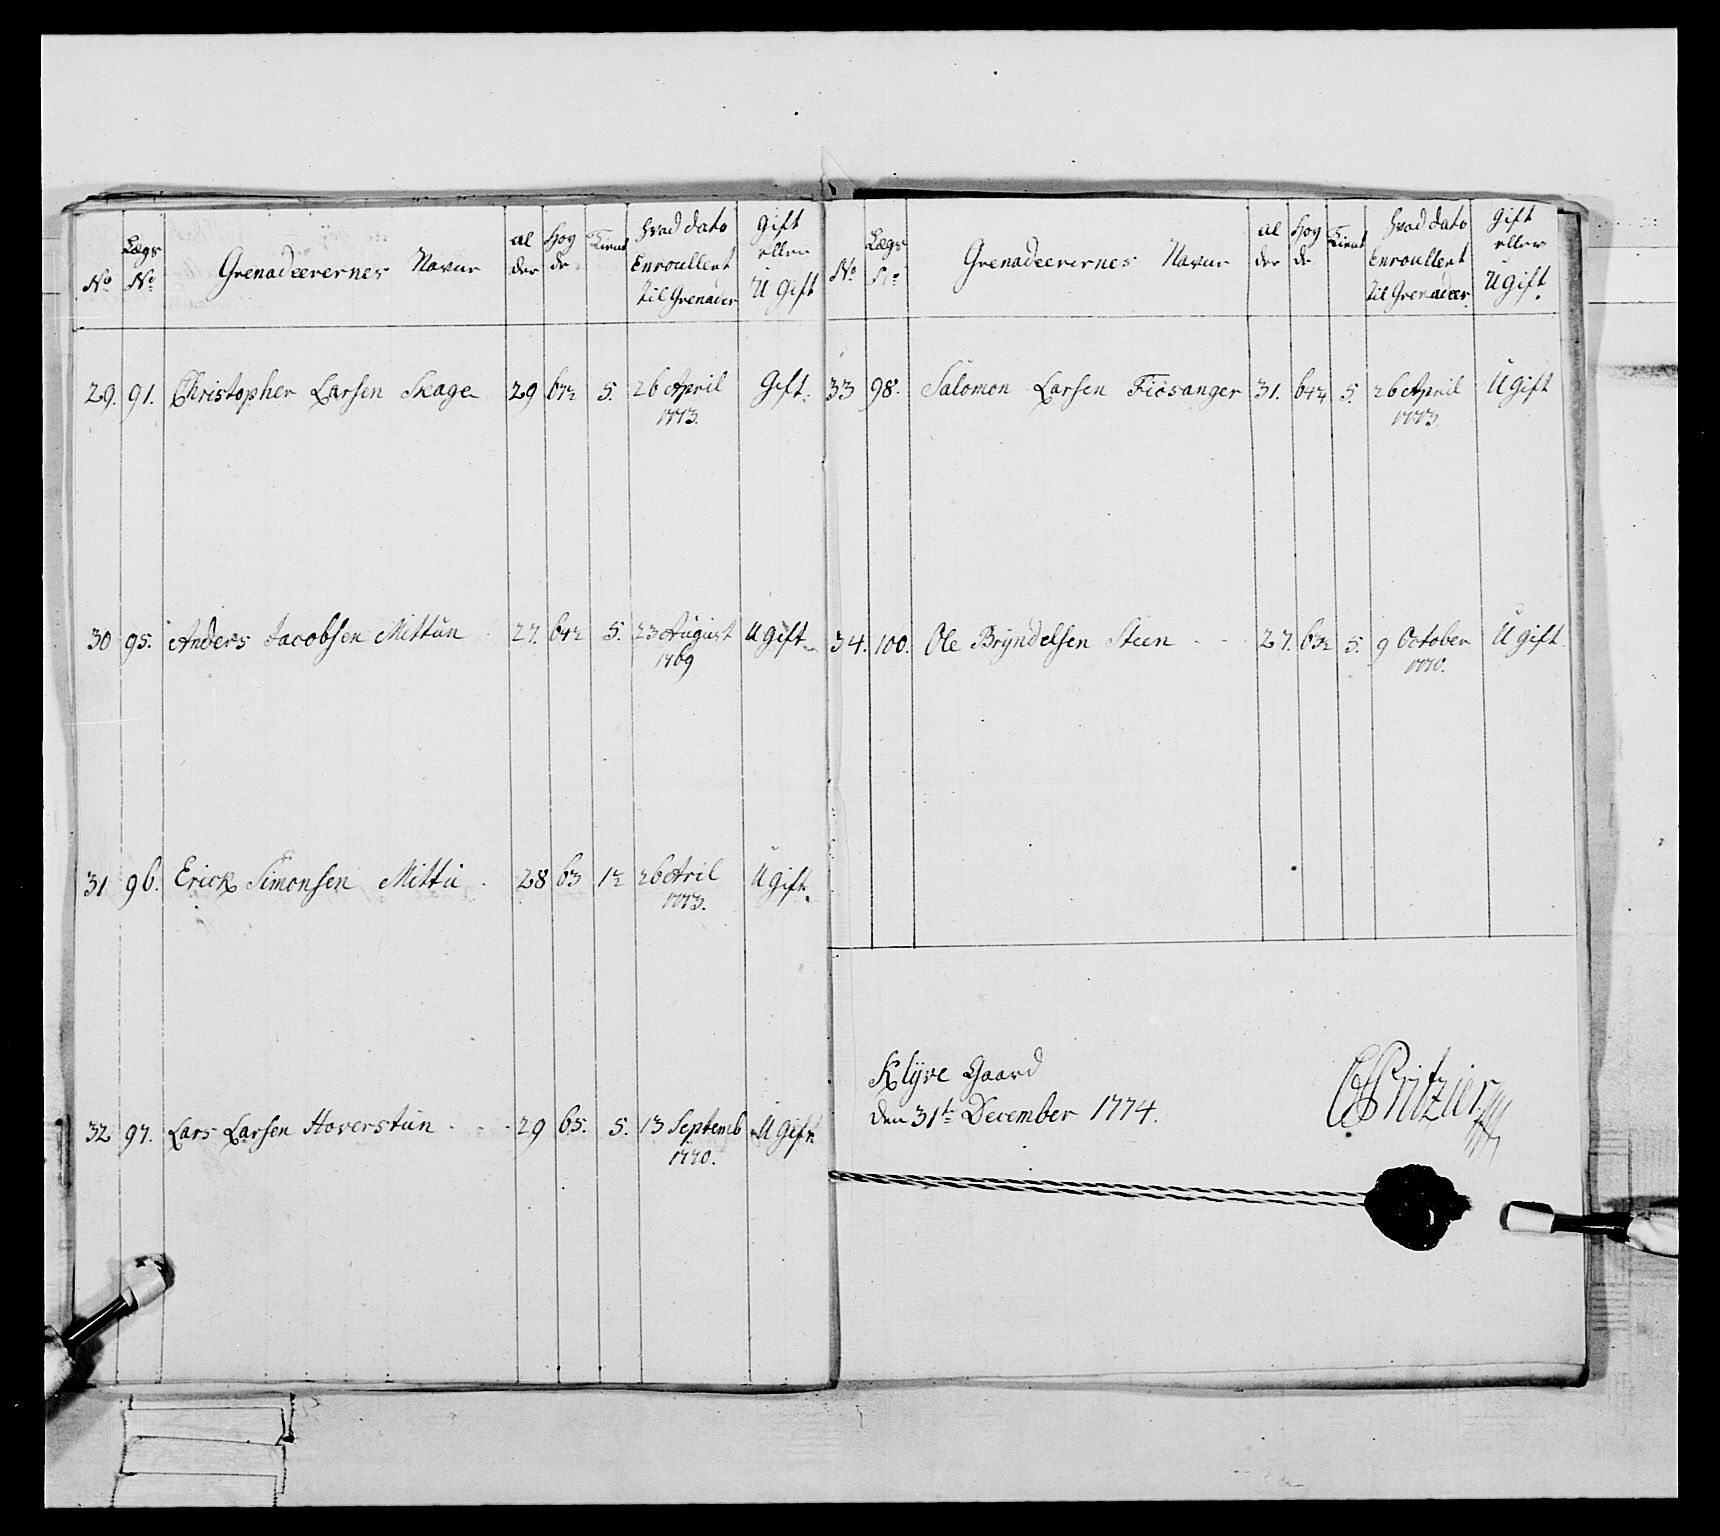 No
Lægs No
Grenadeerernes Navne
al der
Høy de
Tient
Hvad dato Enroullert til Grenadeer
Gift eller U Gift
29. 91. Christopher Larsen Skage 29 6 5. 26 April Gift.
1773.
30 95. Anders Jacobsen Mittun 27. 6 5. 23 August U gift
1769
31 96. Erick Simonsen Mittu 28 63 1½ 26 Aril U gift.
1773.
32 97. Lars Larsen Hoverstun 29 65. 5. 13 Septemb U Gift
1770.
No
Lægs No
Grenadeerernes Navne
al der
Høy de
Tient
Hvad dato Enroullert til Grenadeer
Gift eller U gift.
33 98. Salomon Larsen Fiosanger 31. 5. 26 April U gift
1773.
34. 100. Ole Bryndelsen Steen 27. 63½ 5. 9 October U gift
1770.
Klyve Gaard
den 31te December 1774.
Pritzier